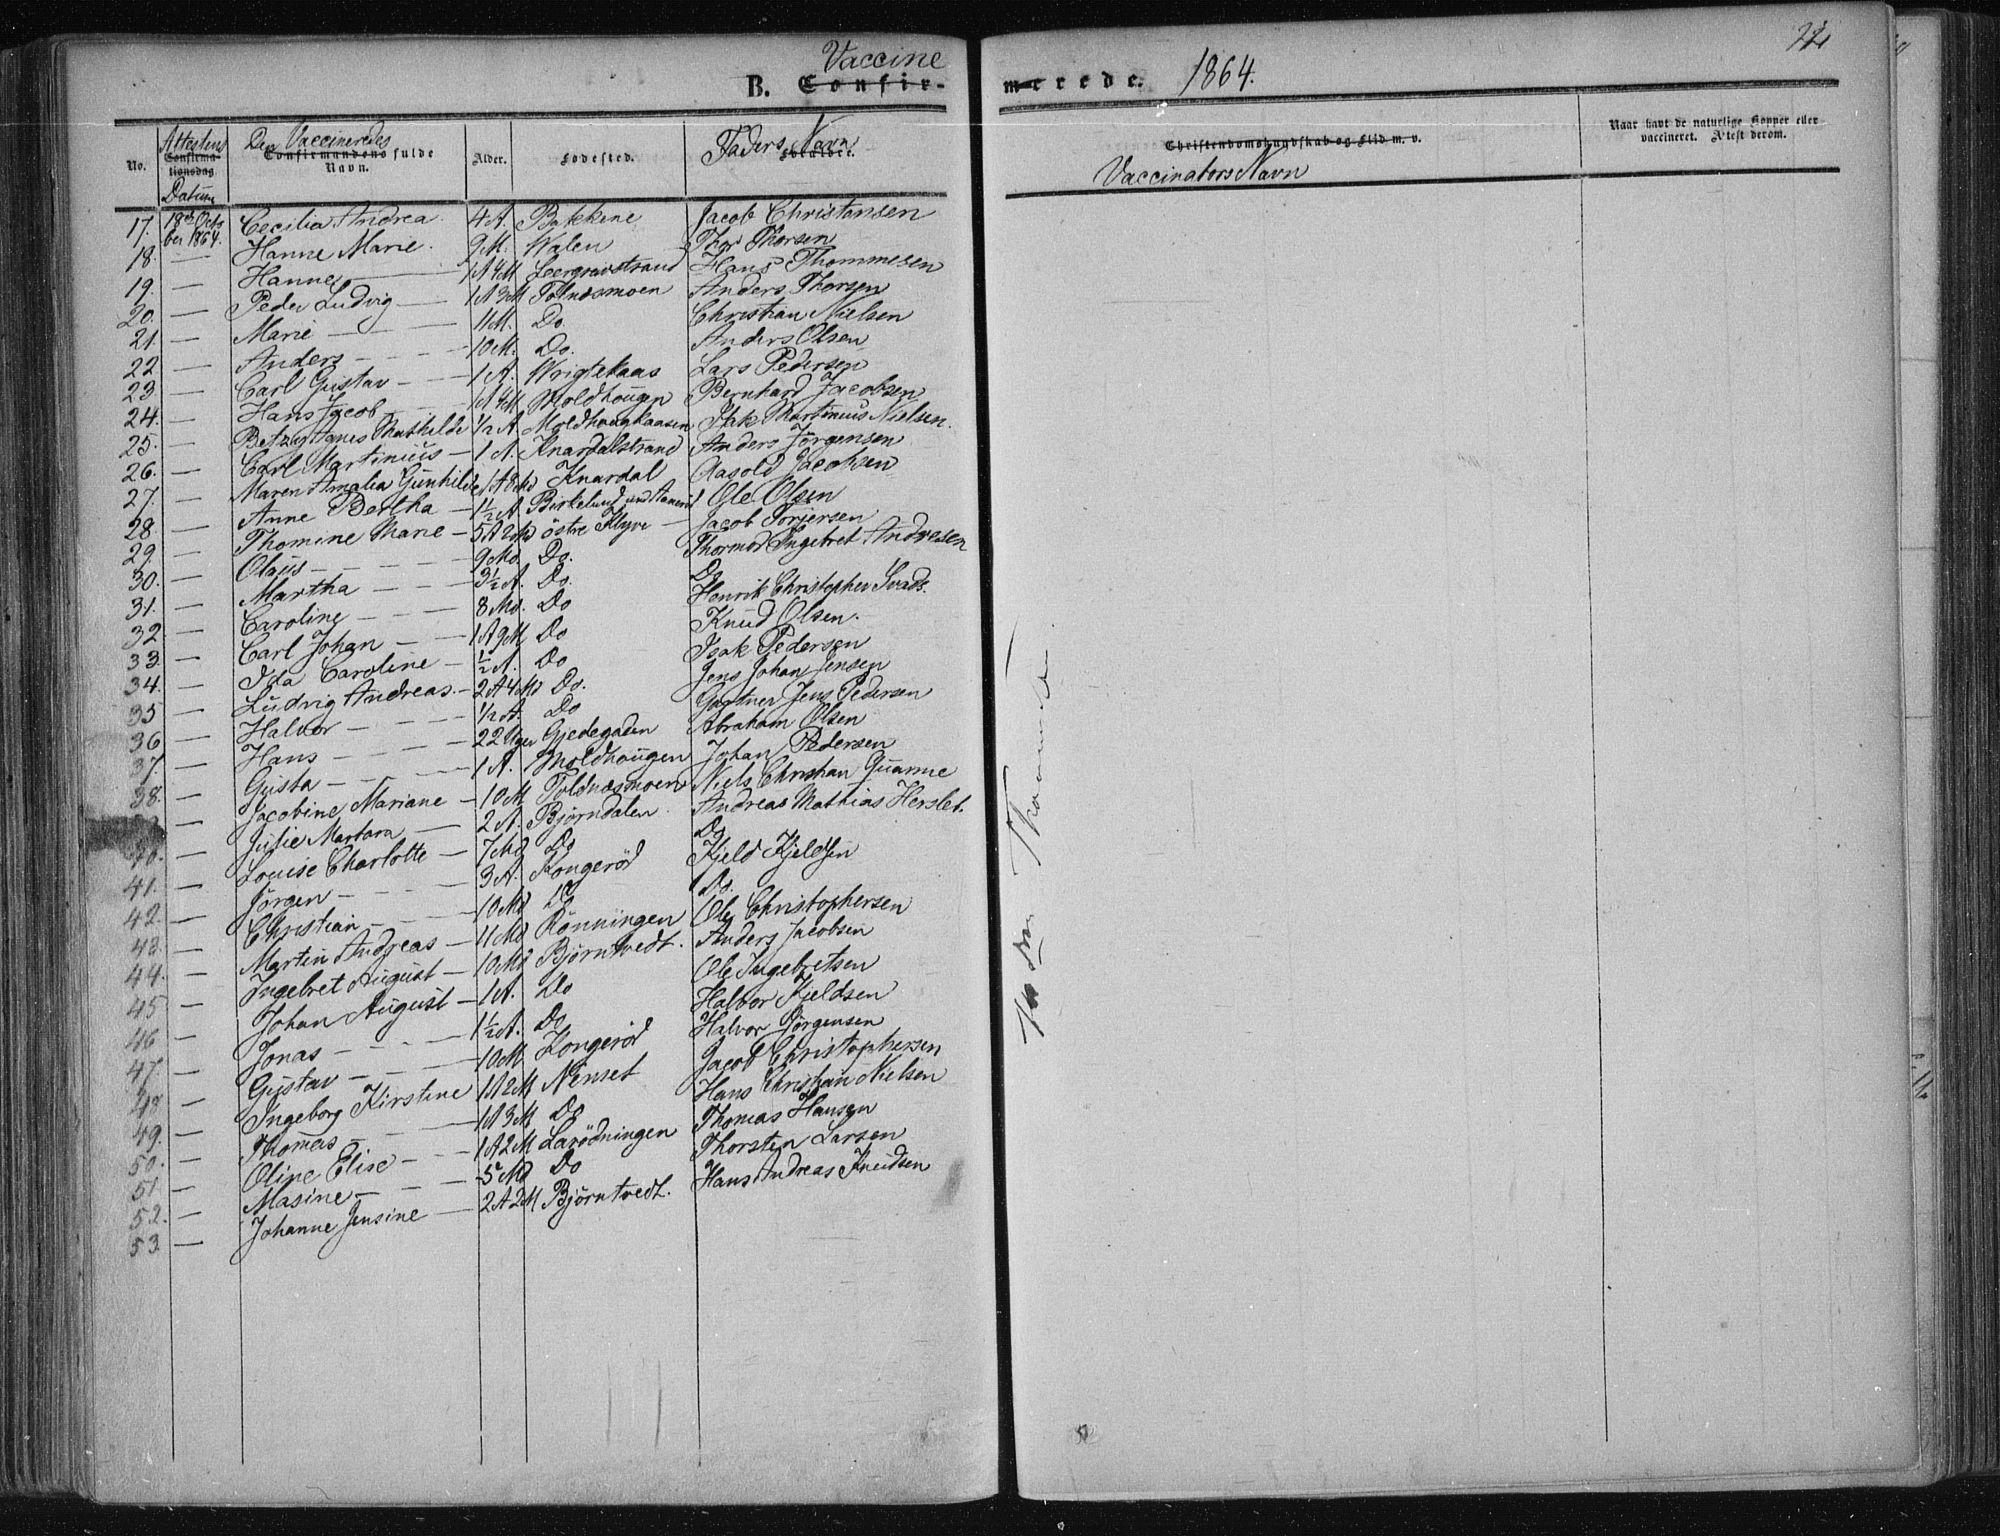 Vaccine
B. Confir- merede. 1864.
No.
Attestens
Confirma-
tionsdag
Datum
Den Vaccineredes
Confirmandens fulde
Navn.
Alder.
Fødested.
Faders Navn
Forældre.
Christendomskundskab og Flid m. v.
Vaccinators Navn
Naar havt de naturlige Kopper eller
vaccineret. Attest derom.
17. 18de Octo Cecilia Andrea 4 A. Bakkene Jacob Christansen
ber 1864.
18. — Hanne Marie 9 M. Walen Thor Thorsen
19. — Hanne — 1 A 4 M Leergravstrand Hans Thommesen
20. — Peder Ludvig — 1 A 3 M Tolnæsmoen Anders Thorsen
21. — Marie — 11 M. Do. Christian Nielsen
22 — Anders — 10 M. Do. Anders Olsen
23. — Carl Gustav — 1 A. Lars Pedersen
24. — Hans Jacob — 1 A 4 M Moldhougen Bernhard Jacobsen
25. — Betzy Agnes Mathilde 1/2 A Moldhougkaasen Isak Martinius Nielsen.
26. — Carl Martinius — 1 A. Knardalstrand Anders Jørgensen
27. — Maren Amalia Gunhilde 1 A 8 Md Knardal Aasold Jacobsen
28. — Anne Bertha — 1 1/2 A Birkelund Ole Olsen
29. — Thomine Marie — 5 A 2 Md østre Klyve — Jacob Torjersen
30. — Olaus — 9 Md. Do. Thormod Ingebret Andresen
31. — Martha — 3 1/2 A. Do. Do
32 — Caroline — 8 Md. Do Henrik Christopher Svads.
33. — Carl Johan — 1 A 9 M Do Knud Olsen.
34. — Ida Caroline — 1/2 A. Do Isak Pedersen
35 — Ludvig Andreas — 2 A 4 Md Do. Jens Johan Jensen
36 — Halvor — 1/2 A. Do Gartner Jens Pedersen
37. — Hans — 22 Uger Gjedegaden Abraham Olsen
38. — Gusta — 1 A. Moldhougen Johan Pedersen
— Jacobine Mariane — 10 M Toldnæsmoen Niels Christian Quarme
40. — Julie Martara — 2 A. Bjørndalen Andreas Mathias Herslet.
41. — Louise Charlotte — 7 Md Do Do
42. — Jørgen — 3 A. Kongerød Kjeld Kjeldsen
43. — Christian — 10 Md Do Do.
44. — Martin Andreas — 11 Md Rønningen Ole Christophersen
45 — Ingebret August — 10 Md Bjørntvedt. Anders Jacobsen
46 — Johan August — 1 A. Do Ole Ingebretsen
47. — Jonas — 1 1/2 A. Do Halvor Kjeldsen
48 — Gustav — 10 M Kongerød Halvor Jørgensen
49. — Ingeborg Kirstine 1 A 2 M Nenset Jacob Christophersen
50. — Thomas — 1 A 3 M Do Hans Christian Nielsen
51. — Oline Elise — 1 A 2 M Larødningen Thomas Hansen
52. — Masine — 5 Md Do Thorsten Larsen
53 — Johanne Jensine — 2 A 2 M Bjørntvedt. Hans Andreas Knudsen